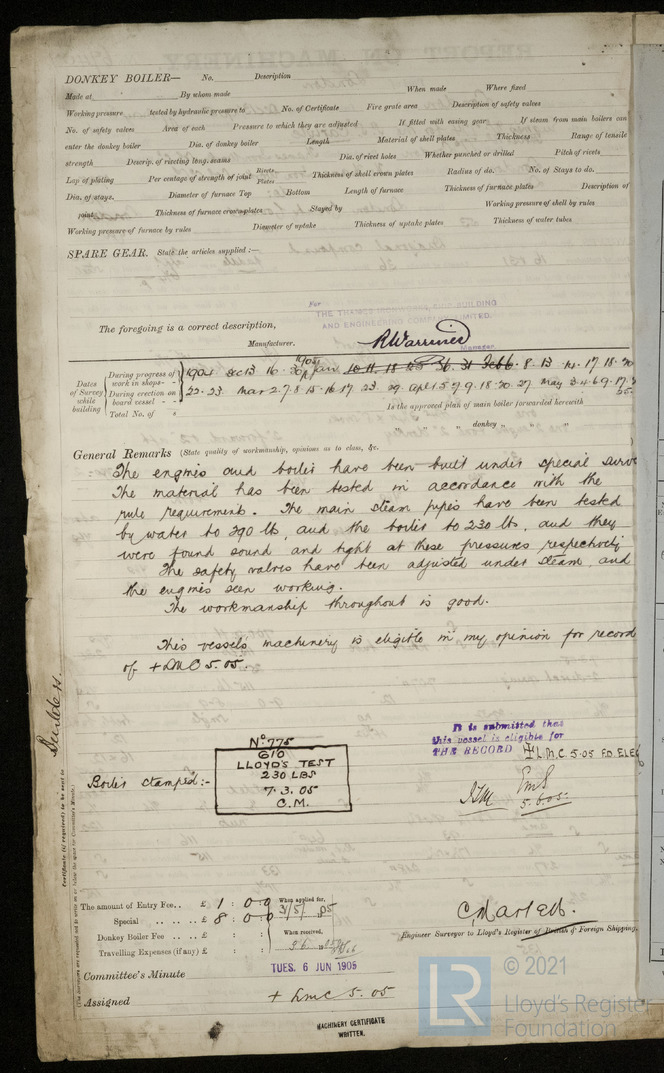 DONKEY BOILER— No. Description
Made at By whom made When made Where fixed
Working pressure tested by hydraulic pressure to No. of Certificate Fire grate area Description of safety valves
No. of safety valves Area of each Pressure to which they are adjusted If fitted with easing gear If steam from main boilers can
enter the donkey boiler Dia. of donkey boiler Length Material of shell plates Thickness Range of tensile
strength Descrip. of riveting long. seams Dia. of rivet holes Whether punched or drilled Pitch of rivets
Lap of plating Per centage of strength of joint Rivets Plates Thickness of shell crown plates Radius of do. No. of Stays to do.
Dia. of stays. Diameter of furnace Top Bottom Length of furnace Thickness of furnace plates Description of
joint Thickness of furnace crown plates Stayed by Working pressure of shell by rules
Working pressure of furnace by rules Diameter of uptake Thickness of uptake plates Thickness of water tubes
SPARE GEAR. State the articles supplied:—
For
THE THAMES IRONWORKS, SHIP BUILDING
AND ENGINEERING COMPANY LIMITED.
The foregoing is a correct description,
Manufacturer.
Manager.
Dates of Survey while building
During progress of work in shops - -
During erection on board vessel - - -
Total No. of
22. 23. Mar 2. 7. 8. 15. 16. 17. 23. 29. Apl 1. 5. 7. 9. 18. 20. 27. May 3. 4. 6. 9. 17.
Is the approved plan of main boiler forwarded herewith
" " " donkey " " "
General Remarks (State quality of workmanship, opinions as to class, &c.
The engines and boiler have been built under special surve
The material has been tested in accordance with the
rule requirements. The main steam pipes have been tested
by water to 290 lb, and the boiler to 230 lb, and they
were found sound and tight at these pressures respectively
The safety valves have been adjusted under steam and
the engines seen working.
The workmanship throughout is good.
This vessel's machinery is eligible in my opinion for record
of + LMC 5.05.
It is submitted that
this vessel is eligible for
THE RECORD + L.M.C 5.05 F.D. ELEC
5.6.05
Boiler stamped:-
No 775
610
LLOYD'S TEST
230 LBS
7.3.05
C.M.
Certificate (if required) to be sent to
The amount of Entry Fee.. £ 1 : 0 : 0 When applied for,
Special .. .. .. £ 8 : 0 : 0 31/5/05
Donkey Boiler Fee .. .. £ : : When received,
Travelling Expenses (if any) £ : :
C Martell.
Engineer Surveyor to Lloyd's Register of British & Foreign Shipping.
Committee's Minute TUES. 6 JUN 1905
Assigned + LMC 5.05
MACHINERY CERTIFICATE
WRITTEN.
LR
© 2021
Lloyd's Register
Foundation